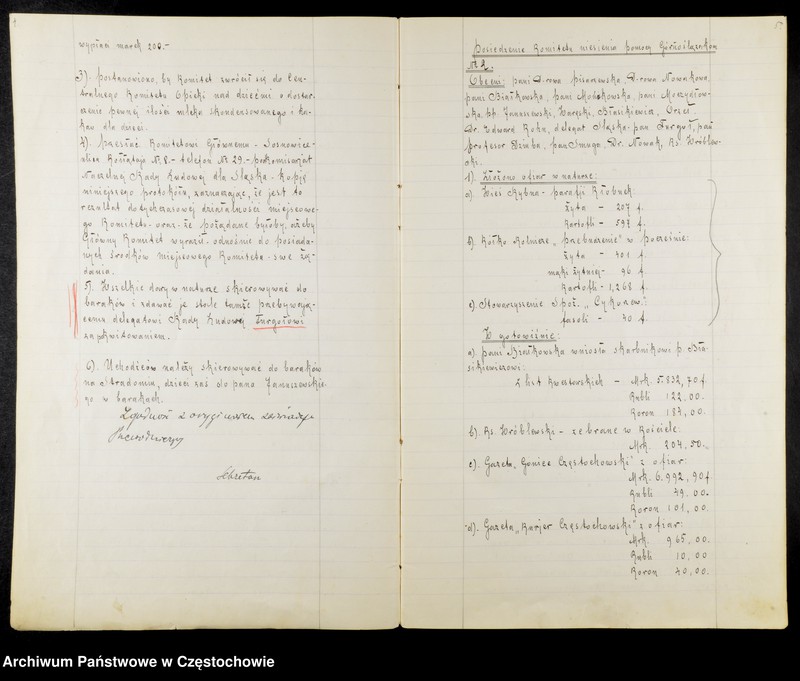 wypłaca marek 200.-
3). Postanowiono, by Komitet zwrócił się do Cen-
tralnego Komitetu Opieki nad dziećmi o dostar-
czenie pewnej ilości mleka skondensowanego i ka-
kao dla dzieci.
4). Przesłać Komitetowi Głównemu - Sosnowice -
ulica Kołłątaja N. 8.- telefon N. 29.- podkomisarjat
Naczelnej Rady Ludowej dla Śląska - kopję
niniejszego protokółu, zaznaczając, że jest to
rezultat dotychczasowej działalności miejscowe-
go Komitetu - oraz - że pożądane byłoby, ażeby
Główny Komitet wyraził - odnośnie do posiada-
nych środków miejscowego Komitetu - swe żą-
dania.
5). Wszelkie dary w naturze skierowywać do
baraków i zdawać je stale tamże przebywają-
cemu delegatowi Rady Ludowej Furgołowi
za pokwitowaniem.
6). Uchodźców należy skierowywać do baraków
na Stradomiu, dzieci zaś do pana Januszewskie-
go w barakach.
Zgodność z oryginałem zaświadcza
Przewodniczący
Sekretarz
5
Posiedzenie Komitetu niesienia pomocy Górnoślązkom
№ 2.
Obecni: pani D-rowa Pisarzewska, D-rowa Nowakowa,
pani Białkowska, pani Modakowska, pani Moszydłow-
ska, pp. Januszewski, Waręski, Błasikiewicz, Orzeł,
Dr. Edward Kohn, delegat Śląska - pan Furgoł, pan
profesor Dziuba, pan Smuga, Dr. Nowak, Ks. Wróblew-
ski.
1). Złożono ofiar w naturze:
a). Wieś Rybna - parafji Kłobuck:
żyta - 207 f.
Kartofli - 597 f.
b). Kółko Rolnicze „Przebudzenie" w Poczesnie:
żyta - 401 f.
mąki żytniej - 96 f.
Kartofli - 1,268 f.
c). Stowarzyszenie Spoż. „
fasoli - 40 f.
W gotowiźnie:
a). pani Białkowska wniosła skarbnikowi p. Bła-
sikiewiczowi:
z list kwestowskich - Mrk. 5.832,70 f.
Rubli 122.00.
Koron 187,00.
b). Ks. Wróblewski - zebrane w Kościele:
Mrk. 204,50.
c). Gazeta „Goniec Częstochowski" z ofiar:
Mrk. 6.992,90 f
Rubli 49.00.
Koron 101,00.
d). Gazeta „Kurjer Częstochowski" z ofiar:
Mrk. 965,00.
Rubli 10,00
Koron 40,00.
Archiwum Państwowe w Częstochowie